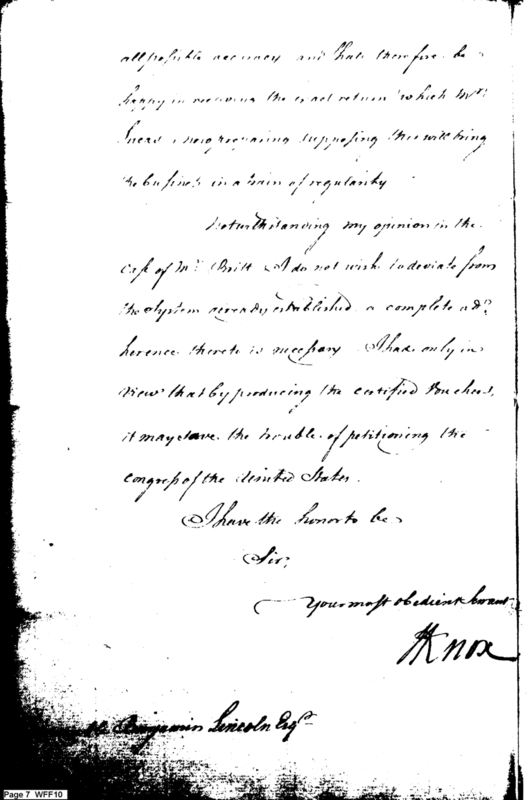 all possible accuracy and shall therefore be
happy in receiving the exact return which Mr.
is now preparing supposing this will bring
the business in a train of regularity
Notwithstanding my opinion in the
case of Mr. Britt I do not wish to deviate from
the System already established a complete ad=
herence thereto is necessary I had only in
view that by producing the certified Vouchers,
it may save the trouble of petitioning the
Congress of the United States.
I have the honor to be
Sir,
Your most obedient Servant
HKnox
Benjamin Lincoln Esqr.
Page 7 WFF10